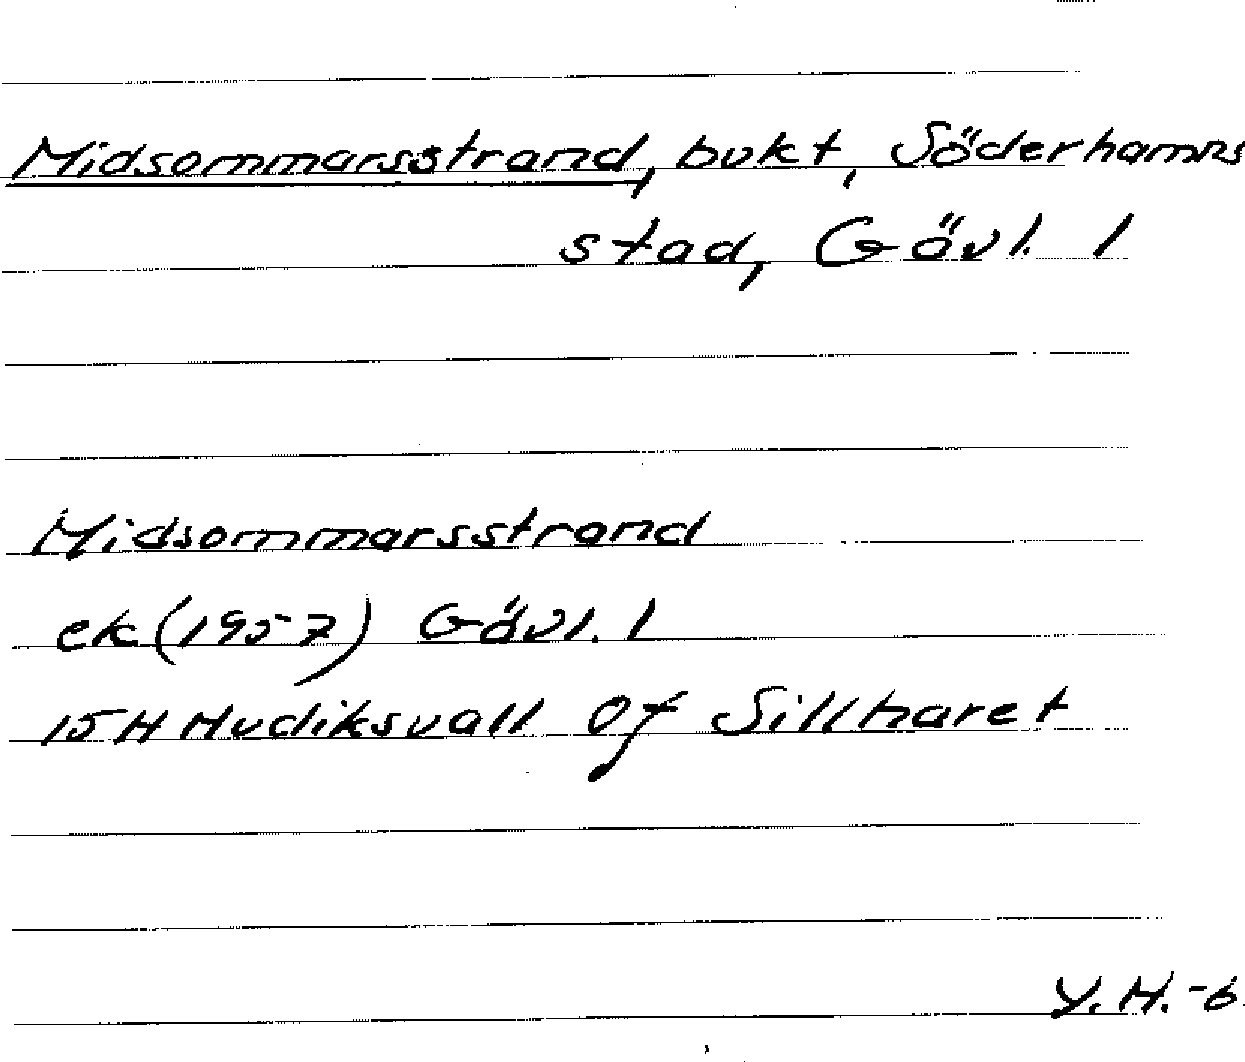 Midsommarsstrand, bukt, Söderhamns
stad, Gävl. l
Midsommarsstrand
ek (1957) Gävl. l
15H Hudiksvall Of Sillharet
Y.H.-6